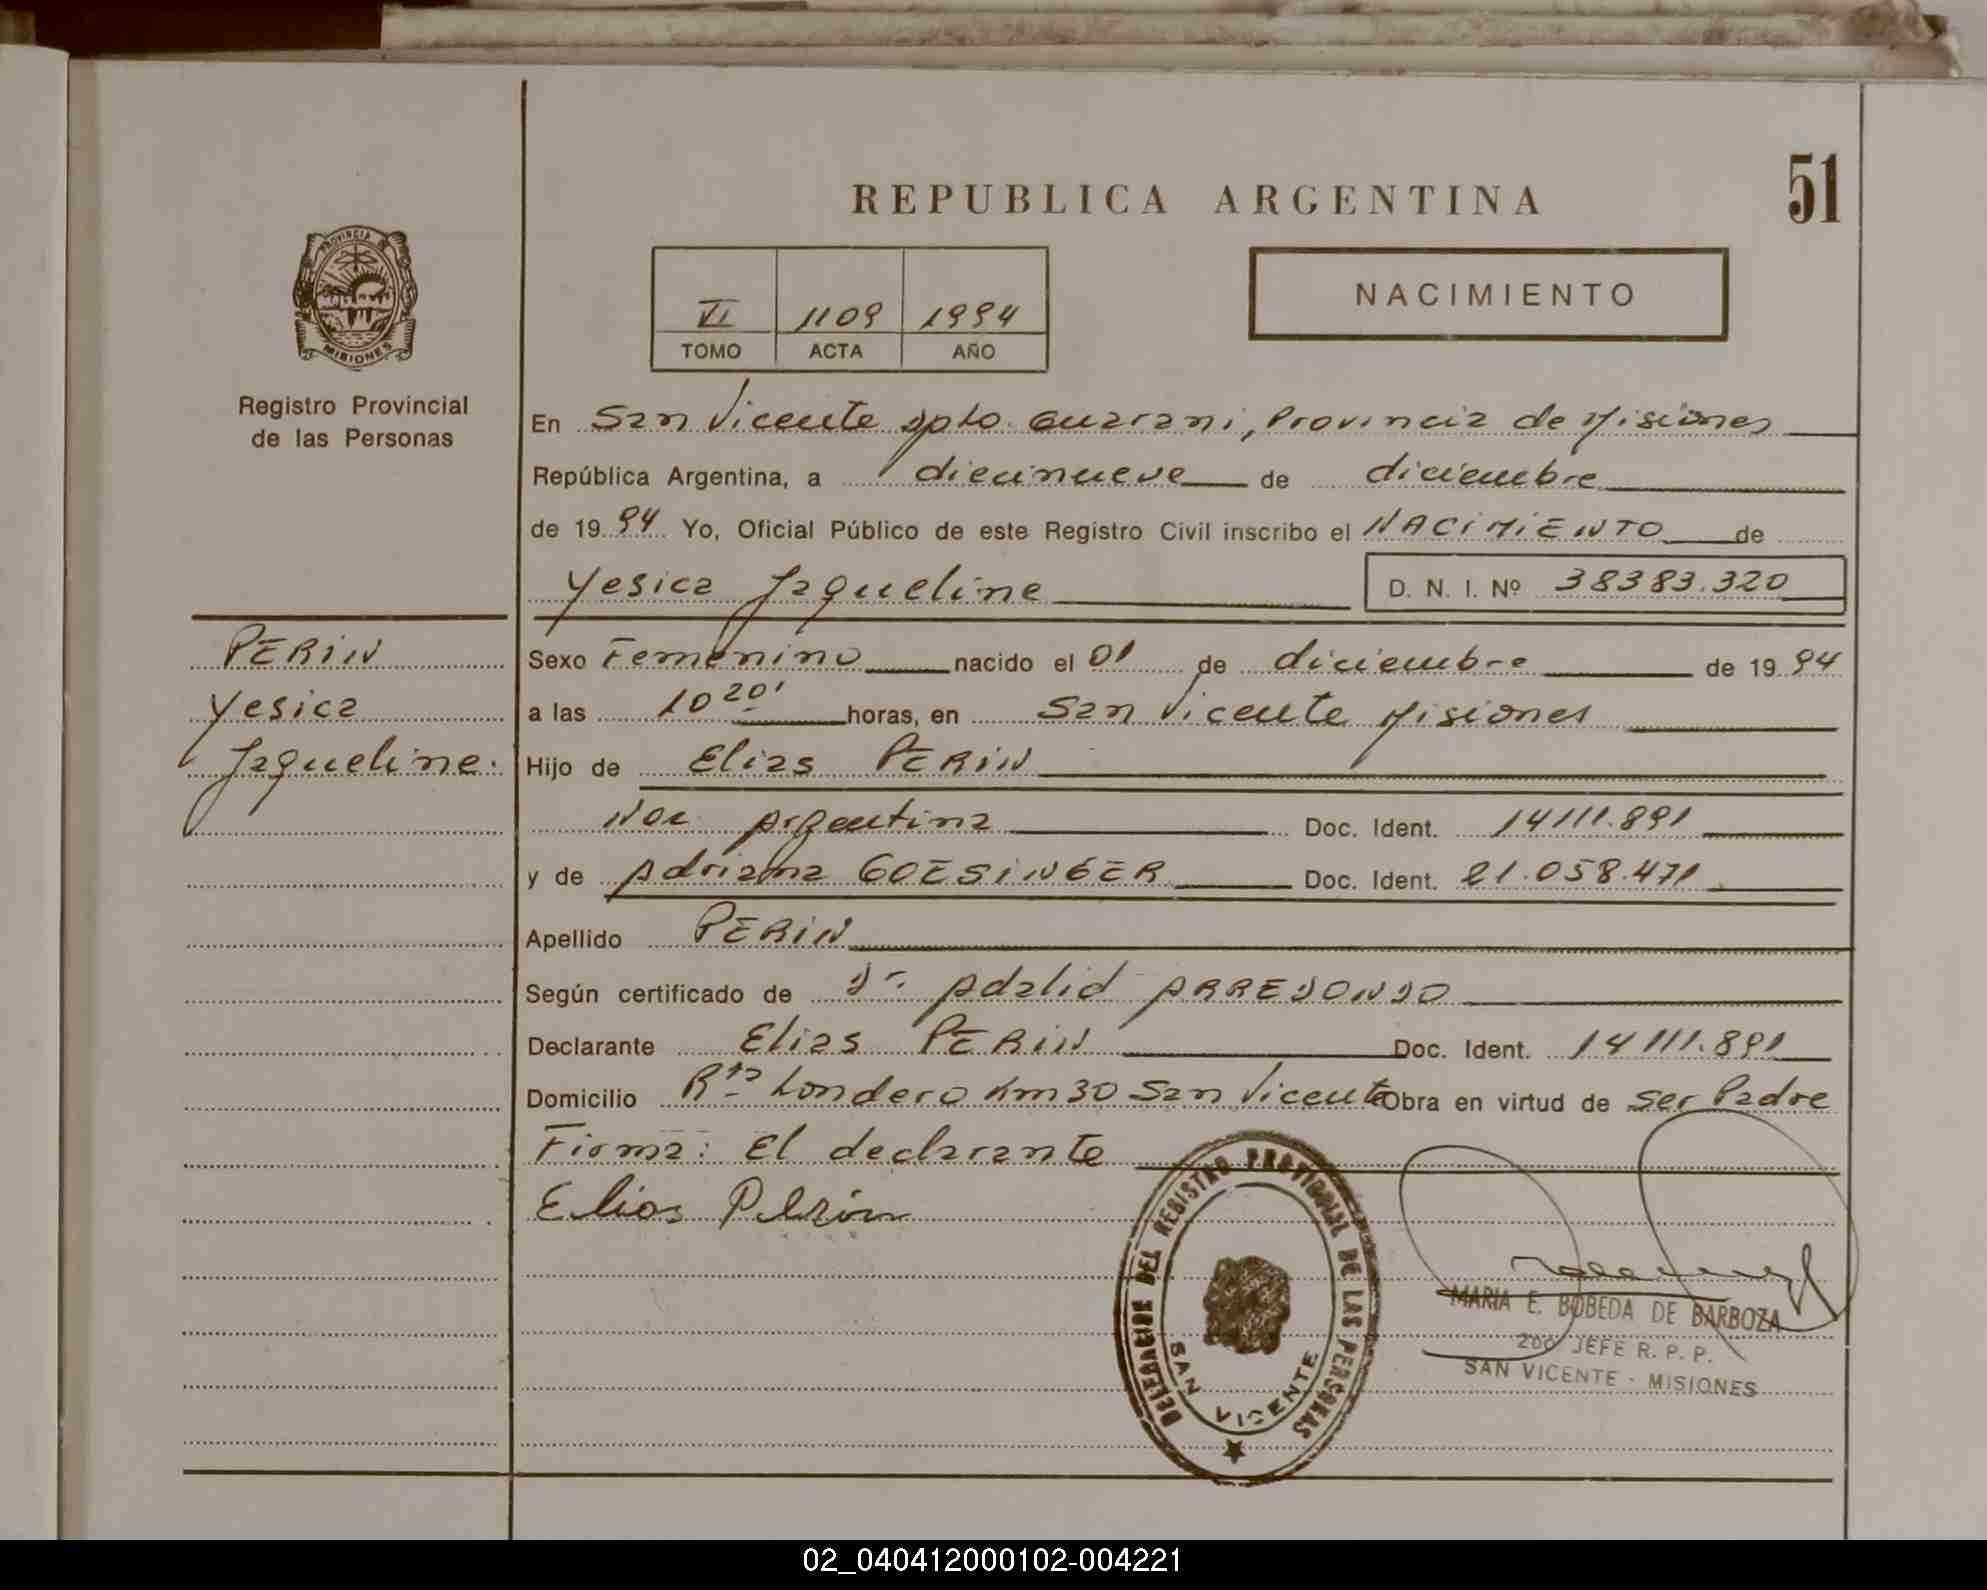 51
REPUBLICA ARGENTINA
PROVINCIA DE
MISIONES
Registro Provincial
de las Personas
VI 1109 1994
TOMO ACTA AÑO
NACIMIENTO
En San Vicente Dpto. Guarani, Provincia de Misiones
República Argentina, a diecinueve de diciembre
de 1994 Yo, Oficial Público de este Registro Civil inscribo el NACIMIENTO de
Yesica Jaqueline D. N. I. Nº 38383.320
PERIN
Yesica
Jaqueline.
Sexo Femenino nacido el 01 de diciembre de 1994
a las 10 20' horas, en San Vicente Misiones
Hijo de Elias PERIN
Nac Argentina Doc. Ident. 14111.891
y de Adriana GOESINGER Doc. Ident. 21.058.471
Apellido PERIN
Según certificado de Dr. Adalid ARREDONDO
Declarante Elias PERIN Doc. Ident. 14111.891
Domicilio Rta Londero Km 30 San Vicente Obra en virtud de ser Padre
Firma: El declarante
Elias Perin
DELEGACION DEL REGISTRO PROVINCIAL DE LAS PERSONAS
SAN VICENTE
MARIA E. BOBEDA DE BARBOZA
2do JEFE R. P. P.
SAN VICENTE - MISIONES
02_040412000102-004221